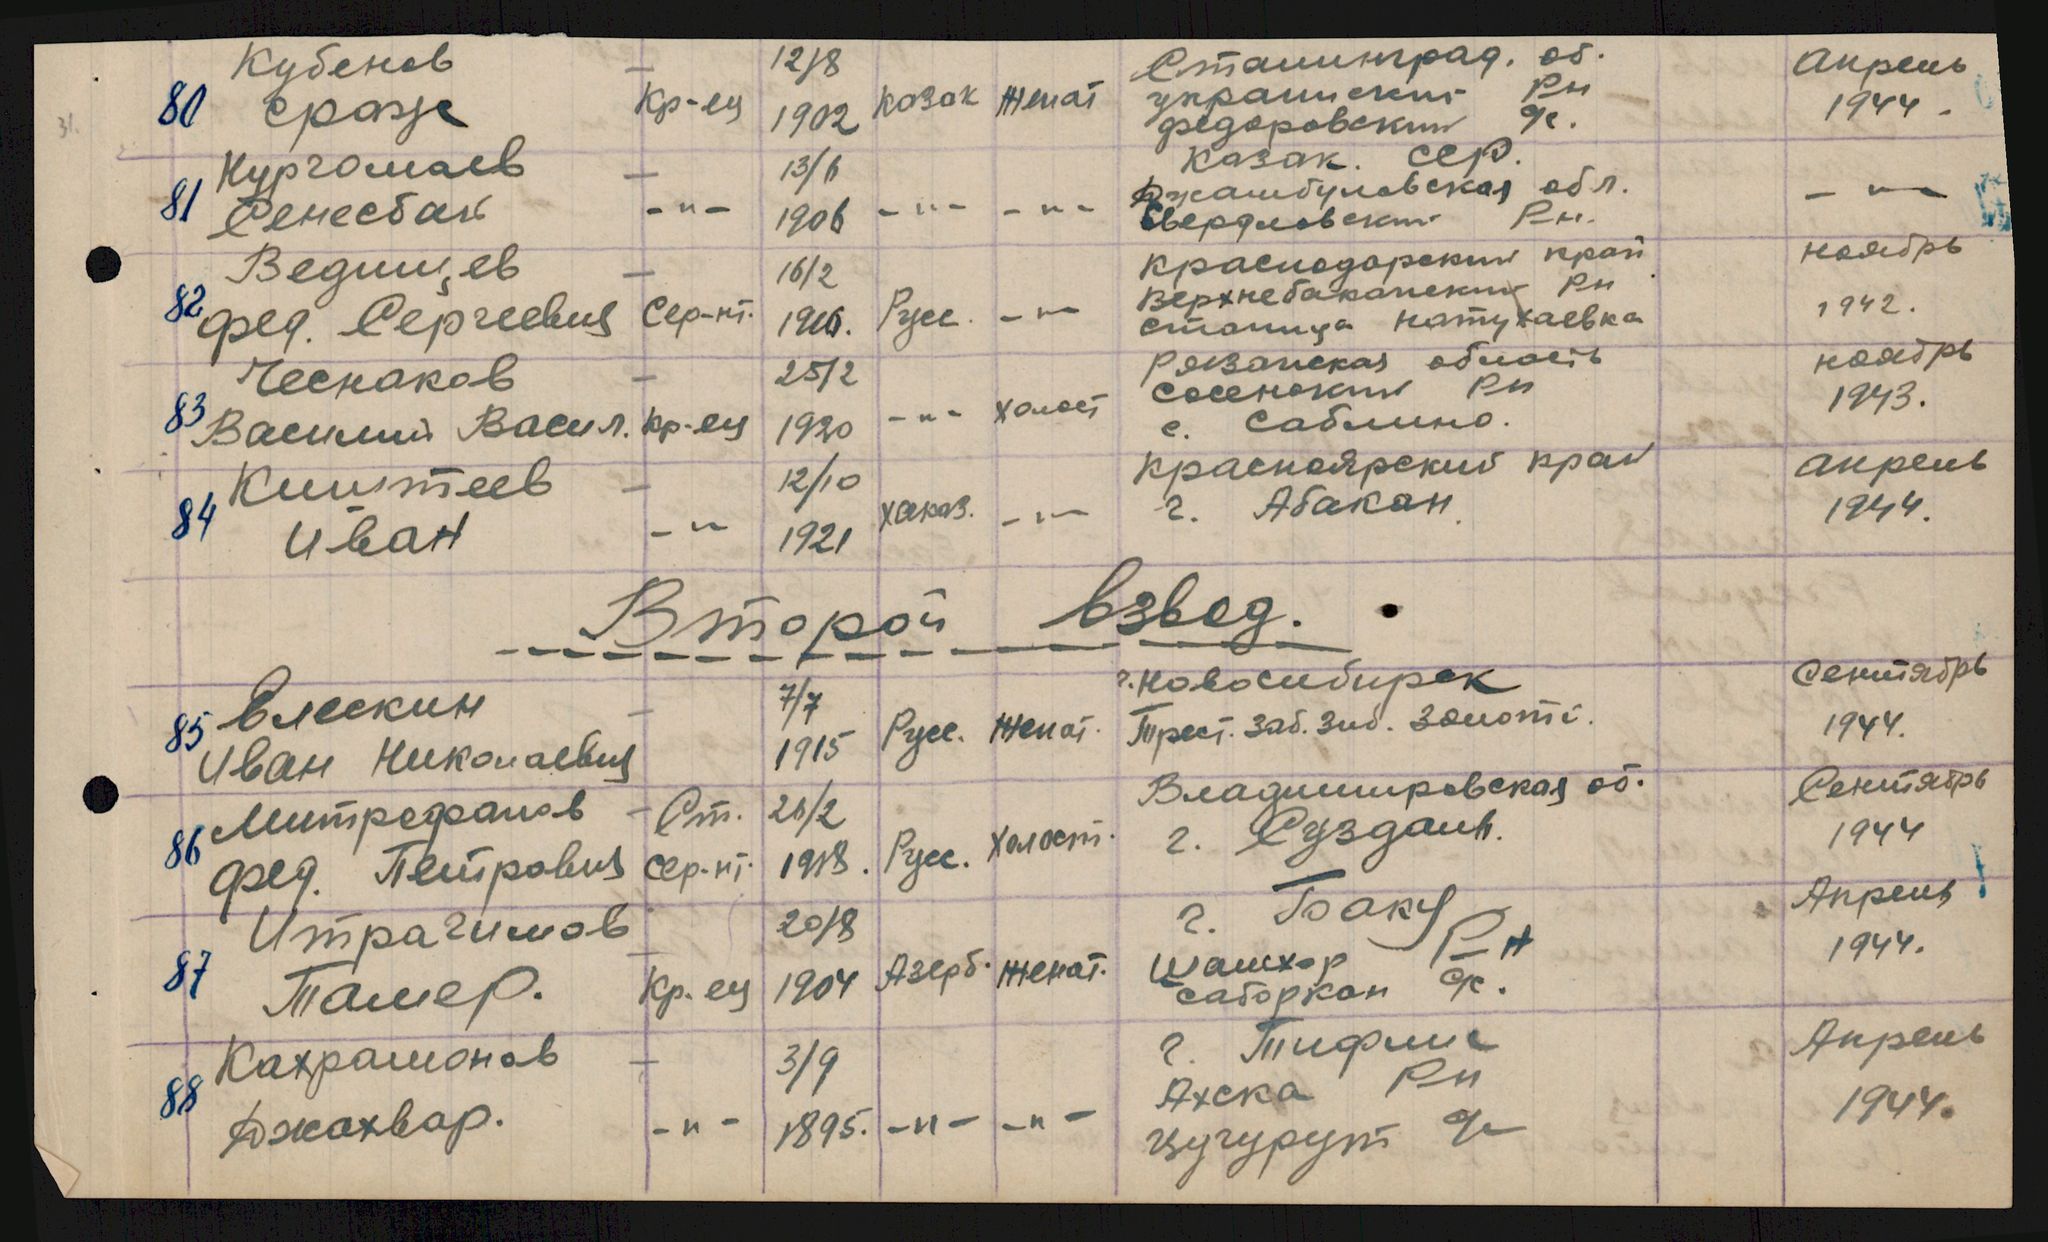 Кубенов — 12/8 Сталинград. об. Апрель
80 Сраж Кр-ец 1902 Козак Женат украинский Рн 1944.
федоровский
Нургомаев — 13/6 Казак. ССР.
81 Сенесбак -"- 1906 -"- -"- Джамбуловская обл. -"-
Свердловский Рн.
Ведищев — 16/2 Краснодарский край ноябрь
82 фед. Сергеевич Сер-нт. Русс. -"- Верхнебаканский Рн 1942.
станица Натухаевка
Чеснаков — 25/2 Рязанская область ноябрь
83 Василий Васил. Кр-ец 1920 -"- холост Сосенский Рн 1943.
с. Саблино.
Киштеев — 12/10 Красноярский край апрель
84 Иван -"- 1921 хаказ. -"- г. Абакан. 1944.
Второй взвод.
Влескин — 7/7 г. Новосибирск Сентябрь
85 Иван Николаевич 1915 Русс. Женат. Трест. Заб. Золото. 1944.
Митрофанов — Ст. 26/2 Владимировская об. Сентябрь
86 фед. Петрович Сер-нт. 1918. Русс. Холост. г. Суздаль. 1944
Итрагимов — 20/8 г. Баку Апрель
87 Тамер. Кр. ец 1904 Азерб. Женат. Шамхор Р-н 1944.
саборкан
Кахрамонов — 3/9 г. Тифлис Апрель
88 Джахвар. -"- 1895. -"- -"- Ахска Рн 1944.
Цугурут